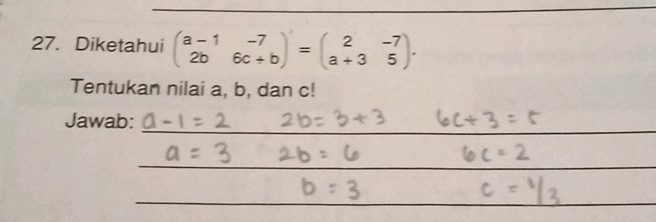 27. Diketahui (a - 1 -7 2b 6c + b) = (2 -7 a + 3 5).
Tentukan nilai a, b, dan c!
Jawab: a - 1 = 2 2b = 3 + 3 6c + 3 = 5
a = 3 2b = 6 6c = 2
b = 3 c = 1/3